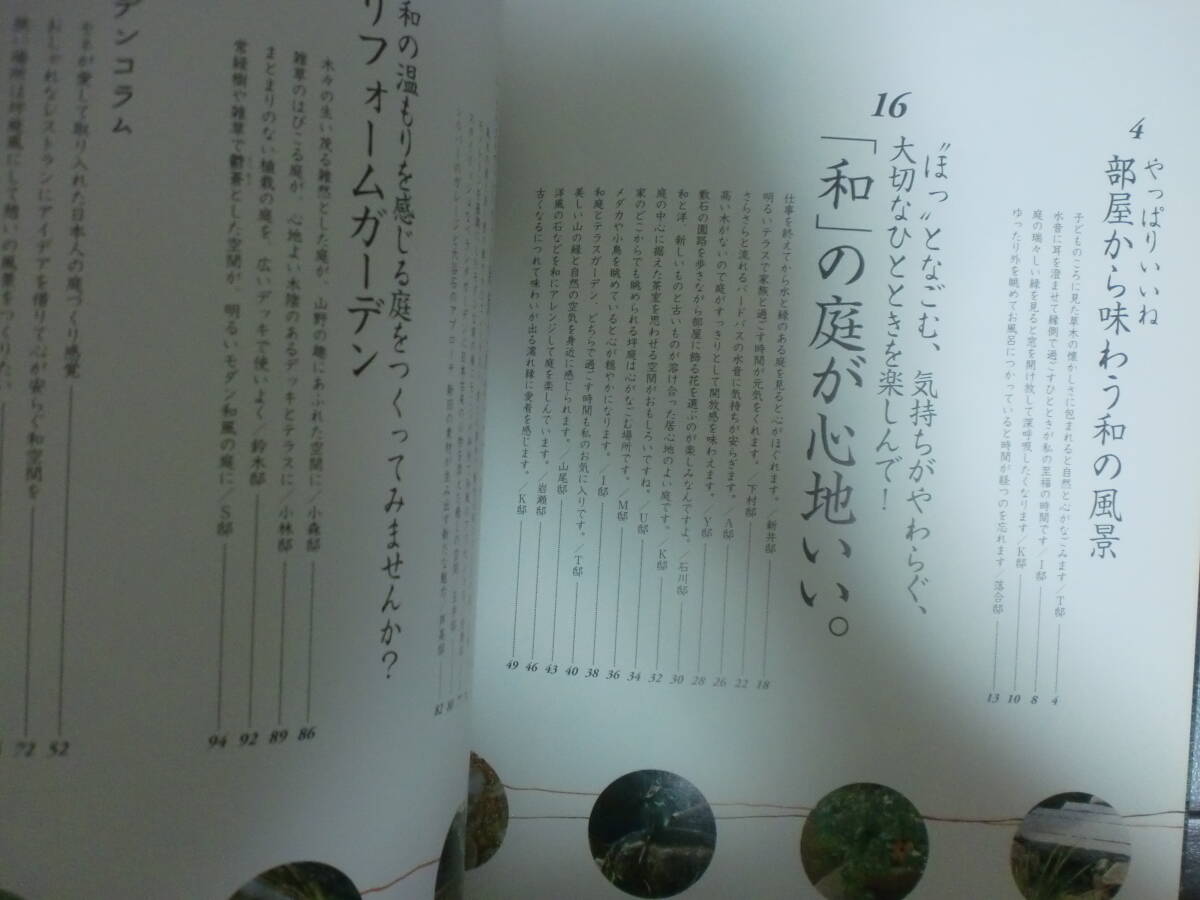 4
やっぱりいいね
部屋から味わう和の風景
子どものころに見た草木の懐かしさに包まれると自然と心がなごみます/T邸 4
水音に耳を澄ませて縁側で過ごすひとときが私の至福の時間です/I邸 8
庭の瑞々しい緑を見ると窓を開け放して深呼吸したくなります/K邸 10
ゆったり外を眺めてお風呂につかっていると時間が経つのを忘れます/落合邸 13
16
“ほっ”となごむ、気持ちがやわらぐ、
大切なひとときを楽しんで!
「和」の庭が心地いい。
仕事を終えてから水と緑のある庭を見ると心がほぐれます。/新井邸 18
明るいテラスで家族と過ごす時間が元気をくれます。/下村邸 22
さらさらと流れるバードバスの水音に気持ちが安らぎます。/A邸 26
高い木がないので庭がすっきりとして開放感を味わえます。/Y邸 28
敷石の園路を歩きながら部屋に飾る花を選ぶのが楽しみなんですよ。/石川邸 30
和と洋、新しいものと古いものが溶け合った居心地のよい庭です。/K邸 32
庭の中心に据えた茶室を思わせる空間がおもしろいですね。/U邸 34
家のどこからでも眺められる坪庭は心がなごむ場所です。/M邸 36
メダカや小鳥を眺めていると心が穏やかになります。/I邸 38
和庭とテラスガーデン、どちらで過ごす時間も私のお気に入りです。/T邸 40
美しい山の緑と自然の空気を身近に感じられます。/山尾邸 43
洋風の石などを和にアレンジして庭を楽しんでいます。/岩瀬邸 46
古くなるにつれて味わいが出る濡れ縁に愛着を感じます。/K邸 49
82
和の温もりを感じる庭をつくってみませんか?
リフォームガーデン
木々の生い茂る雑然とした庭が、山野の趣にあふれた空間に/小森邸 86
雑草のはびこる庭が、心地よい木陰のあるデッキとテラスに/小林邸 89
まとまりのない植栽の庭を、広いデッキで使いよく/鈴木邸 92
常緑樹や雑草で鬱蒼とした空間が、明るいモダン和風の庭に/S邸 94
デンコラム
モネが愛して取り入れた日本人の庭づくり感覚 52
おしゃれなレストランにアイデアを借りて心が安らぐ和空間を 72
狭い場所は坪庭風にして憩いの風景をつくりたい。